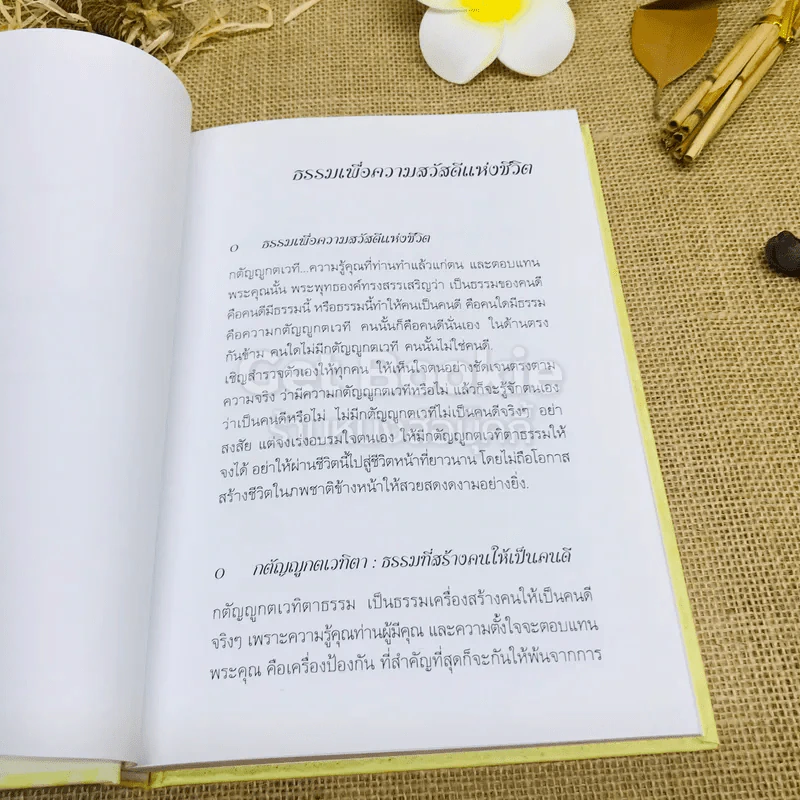 ธรรมเพื่อความสวัสดีแห่งชีวิต
๐ ธรรมเพื่อความสวัสดีแห่งชีวิต
กตัญญูกตเวที...ความรู้คุณที่ท่านทำแล้วแก่ตน และตอบแทน
พระคุณนั้น พระพุทธองค์ทรงสรรเสริญว่า เป็นธรรมของคนดี
คือคนดีมีธรรมนี้ หรือธรรมนี้ทำให้คนเป็นคนดี คือคนใดมีธรรม
คือความกตัญญูกตเวที คนนั้นก็คือคนดีนั่นเอง ในด้านตรง
กันข้าม คนใดไม่มีกตัญญูกตเวที คนนั้นไม่ใช่คนดี.
เชิญสำรวจตัวเองให้ทุกคน ให้เห็นใจตนอย่างชัดเจนตรงตาม
ความจริง ว่ามีความกตัญญูกตเวทีหรือไม่ แล้วก็จะรู้จักตนเอง
ว่าเป็นคนดีหรือไม่ ไม่มีกตัญญูกตเวทีไม่เป็นคนดีจริงๆ อย่า
สงสัย แต่จงเร่งอบรมใจตนเอง ให้มีกตัญญูกตเวทิตาธรรมให้
จงได้ อย่าให้ผ่านชีวิตนี้ไปสู่ชีวิตหน้าที่ยาวนาน โดยไม่ถือโอกาส
สร้างชีวิตในภพชาติข้างหน้าให้สวยสดงดงามอย่างยิ่ง.
๐ กตัญญูกตเวทิตา : ธรรมที่สร้างคนให้เป็นคนดี
กตัญญูกตเวทิตาธรรม เป็นธรรมเครื่องสร้างคนให้เป็นคนดี
จริงๆ เพราะความรู้คุณท่านผู้มีคุณ และความตั้งใจจะตอบแทน
พระคุณ คือเครื่องป้องกัน ที่สำคัญที่สุดก็จะกันให้พ้นจากการ
Get Bookie